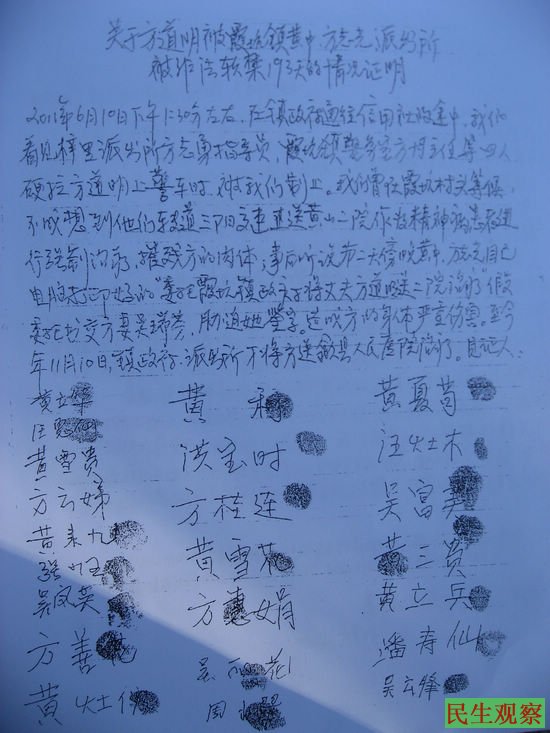 关于方道明被霞坑镇黄中、方志光派出所
被非法软禁193天的情况证明
2011年6月10日下午1:30分左右,在镇政府通往信用社的途中,我们
看见梓里派出所方志勇指导员、霞坑镇综合室方主任等四人
硬拉方道明上警车时,被我们制止。我们曾在霞坑村头等候,
不成想到他们转道三阳交速送黄山二院作为精神病患者进
行强制治疗,摧残方的肉体,事后听说第二天傍晚黄中、方志自己
电脑打印好的“委托霞坑镇政府将丈夫方道明送二院治疗”假
委托书交方妻吴瑞芳,胁迫她签字。造成方的身体严重伤害。至今
年11月10日,镇政府、派出所才将方送歙县人民医院治疗。见证人:
黄立华 黄 利 黄夏菊
汪
黄雪贵 洪宝时 汪灶木
方云娣 方桂连 吴富英
黄来九 黄雪花 黄三贵
吴凤英 方惠娟 黄立兵
方善 吴 花 潘寿仙
黄灶 周 吴云锋
民生观察